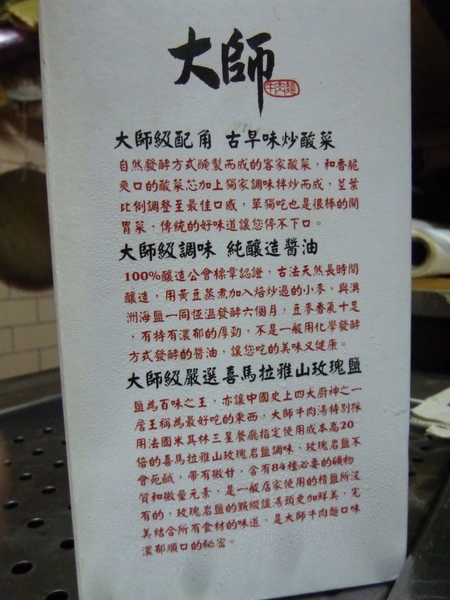 大師
牛肉麵
大師級配角 古早味炒酸菜
自然發酵方式醃製而成的客家酸菜，和香脆
爽口的酸菜芯加上獨家調味拌炒而成，莖葉
比例調整至最佳口感，單獨吃也是很棒的開
胃菜，傳統的好味道讓您停不下口。
大師級調味 純釀造醬油
100%釀造公會標章認證，古法天然長時間
釀造，用黃豆蒸煮加入焙炒過的小麥，與澳
洲海鹽一同恆溫發酵六個月，豆麥香氣十足
，有持有濃郁的厚勁，不是一般用化學發酵
方式發酵的醬油，讓您吃的美味又健康。
大師級嚴選喜馬拉雅山玫瑰鹽
鹽為百味之王，亦讓中國史上四大廚神之一
詹王稱為最好吃的東西，大師牛肉湯特別採
用法國米其林三星餐廳指定使用成本高20
倍的喜馬拉雅山玫瑰岩鹽調味，玫瑰岩鹽不
會死鹹，帶有微甘，含有84種必要的礦物
質和微量元素，是一般店家使用的精鹽所沒
有的，玫瑰岩鹽的點綴讓湯頭更加鮮美，完
美結合所有食材的味道，是大師牛肉麵口味
濃郁順口的秘密。